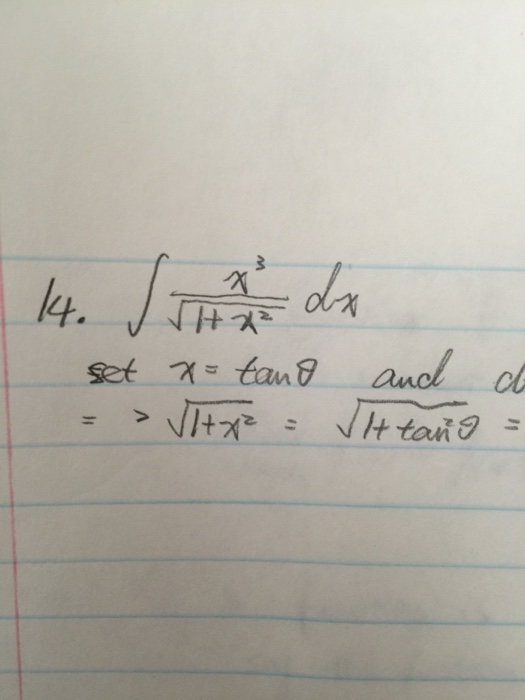 14. ∫ x³/√(1+x²) dx
set x = tanθ and d
=> √(1+x²) = √(1+tan²θ) =